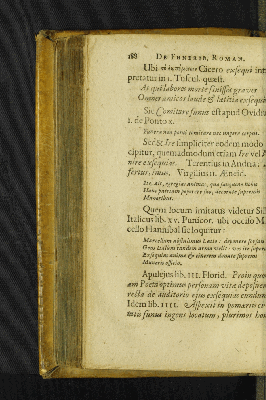 188 DE FUNERIB. ROMAN.
Ubi Cicero exsequi int
pretatur in 1. Tuscul. quæst.
At qui labores morte finisset graves
Omnes amicos laude & lætitia exsequi
Sic Comitare funus est apud Ovidiu
1. de Ponto x.
Funere non potui comitare nec impare corpus.
Sed & Ire simpliciter eodem modo
cipitur, quemadmodum etiam Ire vel
nire exsequias. Terentius in Andria:
fertur, imus. Virgilius 11. Æneid.
Ite, ait, egregias animas, quæ sanguine nobis
Hanc patriam peperere suo, decorate supremis
Muneribus.
Quem locum imitatus videtur Sil
Italicus lib. xv. Punicor. ubi occiso M
cello Hannibal sic loquitur:
Marcellum absulimus Latio: deponere
Gens Italum tandem arma velit: vos ite superbi
Exsequias animæ & cinerem donate supremi
Muneris officio.
Apulejus lib. III. Florid. Proin quo
am Poetæ optimus personam vita deposuer
recto de auditorio ejus exsequias eundum
Idem lib. IIII. Aspexit in pomœrio ci
tatis funus ingens locatum, plurimos hom